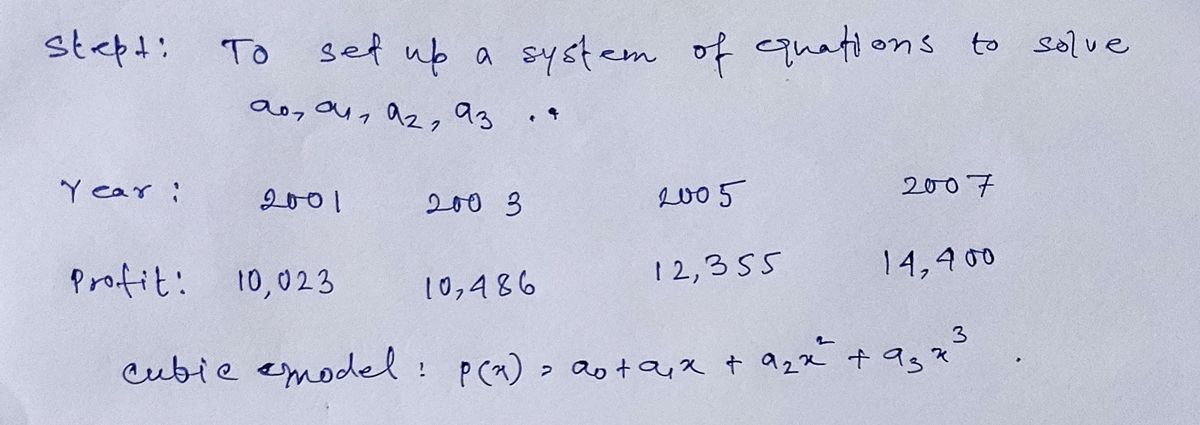 Step1: To set up a system of equations to solve
a₀, a₁, a₂, a₃ ..
Year: 2001 2003 2005 2007
Profit: 10,023 10,486 12,355 14,400
cubic emodel: P(x) = a₀ + a₁x + a₂x² + a₃x³ .